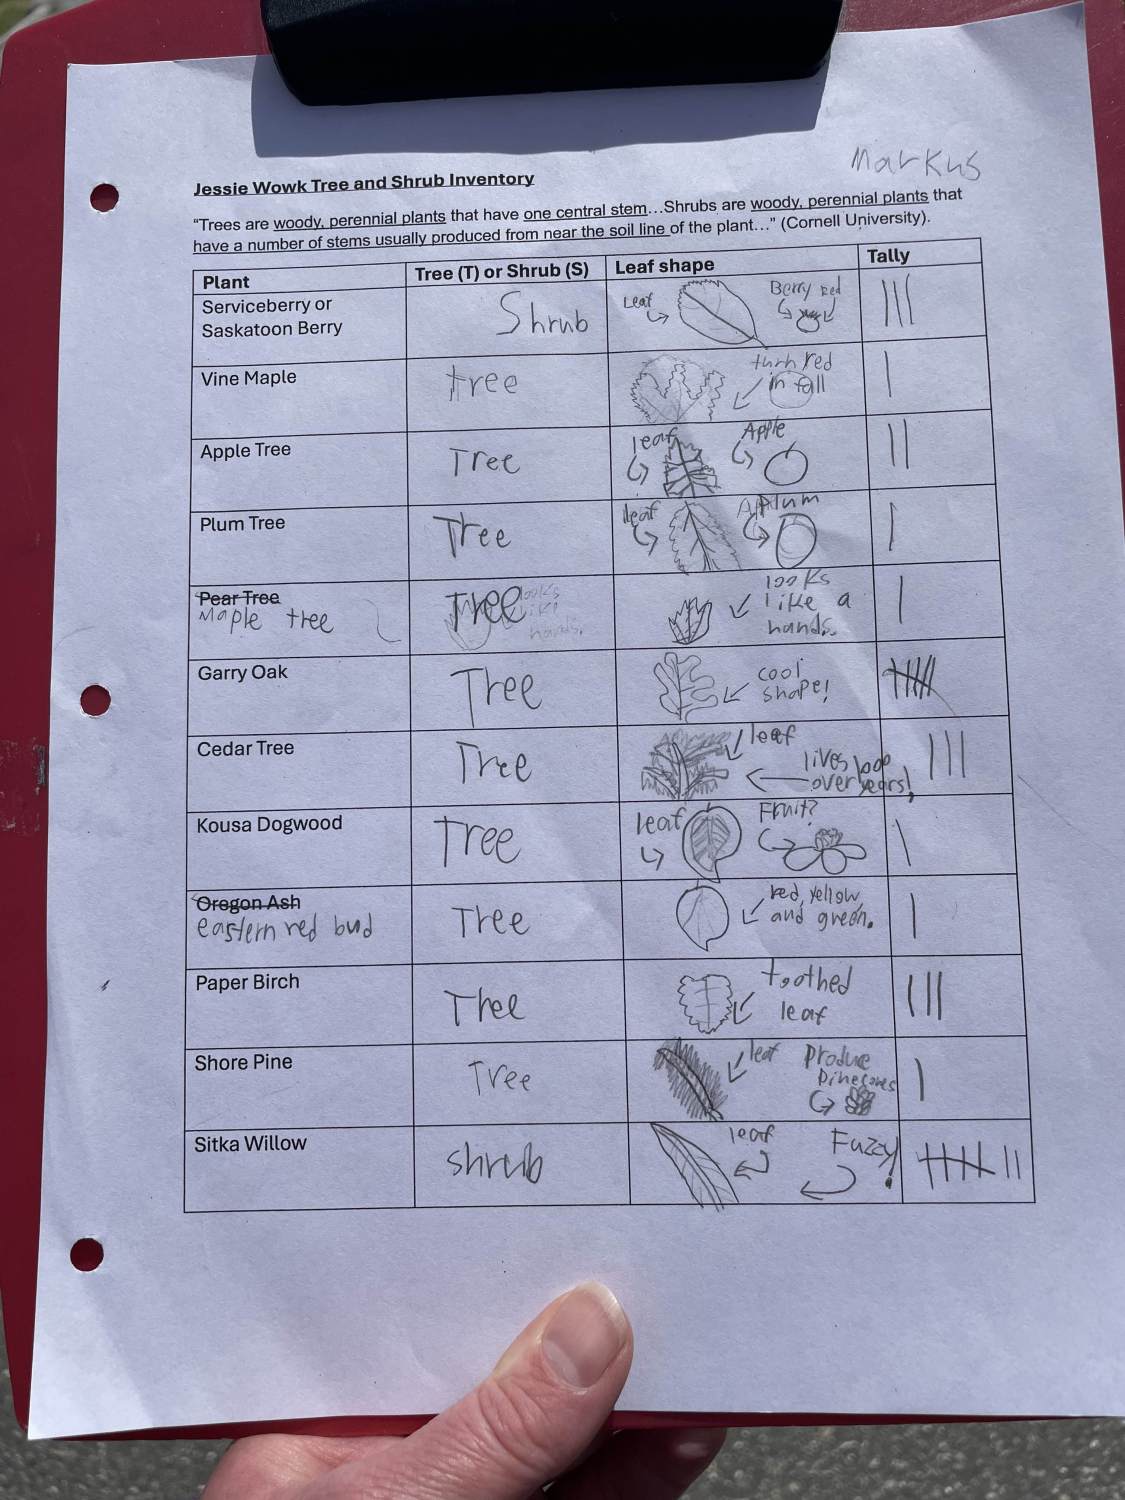 Markus
Jessie Wowk Tree and Shrub Inventory
“Trees are woody, perennial plants that have one central stem…Shrubs are woody, perennial plants that
have a number of stems usually produced from near the soil line of the plant…” (Cornell University).
Plant Tree (T) or Shrub (S) Leaf shape Tally
Serviceberry or
Saskatoon Berry
Shrub
Leaf
Berry red
Vine Maple
tree
turn red
in fall
Apple Tree
Tree
leaf
Apple
Plum Tree
Tree
leaf
Plum
Pear Tree
Maple tree
Tree
looks
like
hands.
looks
like a
hands.
Garry Oak
Tree
cool
shape!
Cedar Tree
Tree
leaf
lives
over years!
Kousa Dogwood
Tree
leaf
Fruit?
Oregon Ash
eastern red bud
Tree
red, yellow
and green.
Paper Birch
Tree
toothed
leaf
Shore Pine
Tree
leaf
Produce
Pinecones
Sitka Willow
shrub
leaf
Fuzzy!